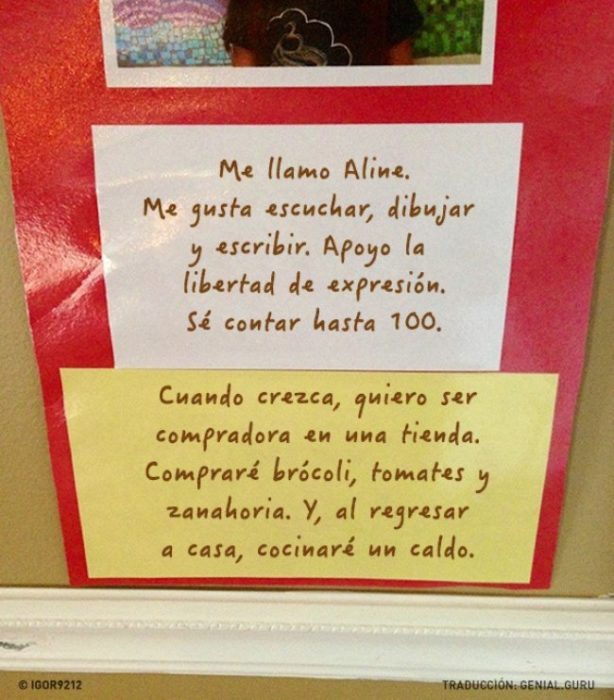 Me llamo Aline.
Me gusta escuchar, dibujar
y escribir. Apoyo la
libertad de expresión.
Sé contar hasta 100.
Cuando crezca, quiero ser
compradora en una tienda.
Compraré brócoli, tomates y
zanahoria. Y, al regresar
a casa, cocinaré un caldo.
© IGOR9212
TRADUCCIÓN: GENIAL.GURU